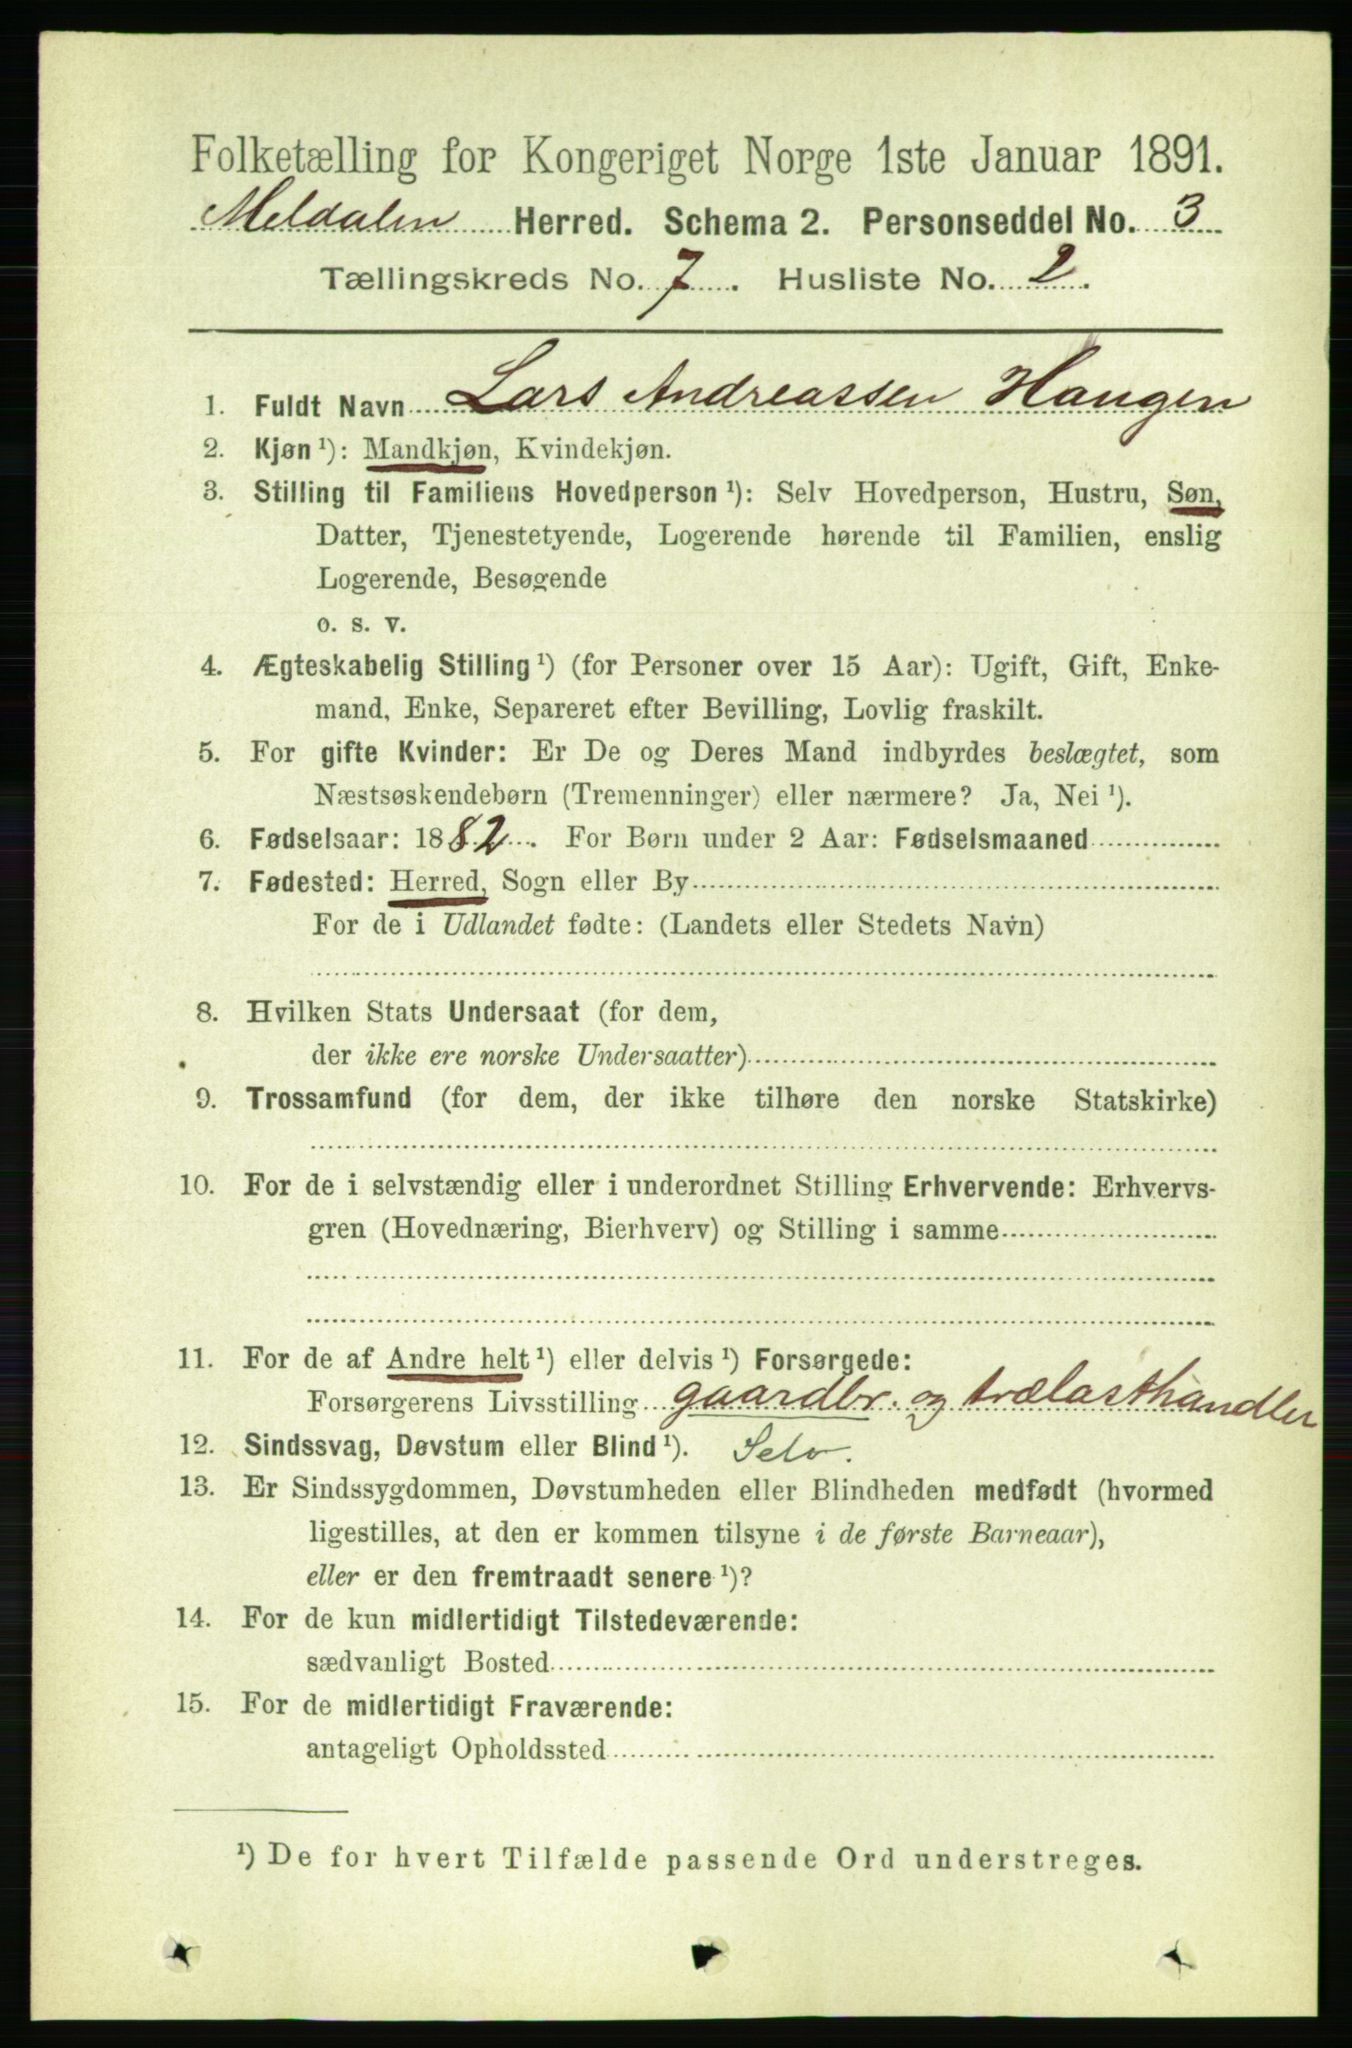 Folketælling for Kongeriget Norge 1ste Januar 1891.
Meldalen Herred. Schema 2. Personseddel No. 3
Tællingskreds No. 7. Husliste No. 2.
1. Fuldt Navn Lars Andreassen Haugen
2. Kjøn ¹): Mandkjøn, Kvindekjøn.
3. Stilling til Familiens Hovedperson ¹): Selv Hovedperson, Hustru, Søn,
Datter, Tjenestetyende, Logerende hørende til Familien, enslig
Logerende, Besøgende
o. s. v.
4. Ægteskabelig Stilling ¹) (for Personer over 15 Aar): Ugift, Gift, Enke-
mand, Enke, Separeret efter Bevilling, Lovlig fraskilt.
5. For gifte Kvinder: Er De og Deres Mand indbyrdes beslægtet, som
Næstsøskendebørn (Tremenninger) eller nærmere? Ja, Nei ¹).
6. Fødselsaar: 1882. For Børn under 2 Aar: Fødselsmaaned
7. Fødested: Herred, Sogn eller By
For de i Udlandet fødte: (Landets eller Stedets Navn)
8. Hvilken Stats Undersaat (for dem,
der ikke ere norske Undersaatter)
9. Trossamfund (for dem, der ikke tilhøre den norske Statskirke)
10. For de i selvstændig eller i underordnet Stilling Erhvervende: Erhvervs-
gren (Hovednæring, Bierhverv) og Stilling i samme
11. For de af Andre helt ¹) eller delvis ¹) Forsørgede:
Forsørgerens Livsstilling gaardbr. og trælasthandler
12. Sindssvag, Døvstum eller Blind ¹). Selv.
13. Er Sindssygdommen, Døvstumheden eller Blindheden medfødt (hvormed
ligestilles, at den er kommen tilsyne i de første Barneaar),
eller er den fremtraadt senere ¹)?
14. For de kun midlertidigt Tilstedeværende:
sædvanligt Bosted
15. For de midlertidigt Fraværende:
antageligt Opholdssted
¹) De for hvert Tilfælde passende Ord understreges.